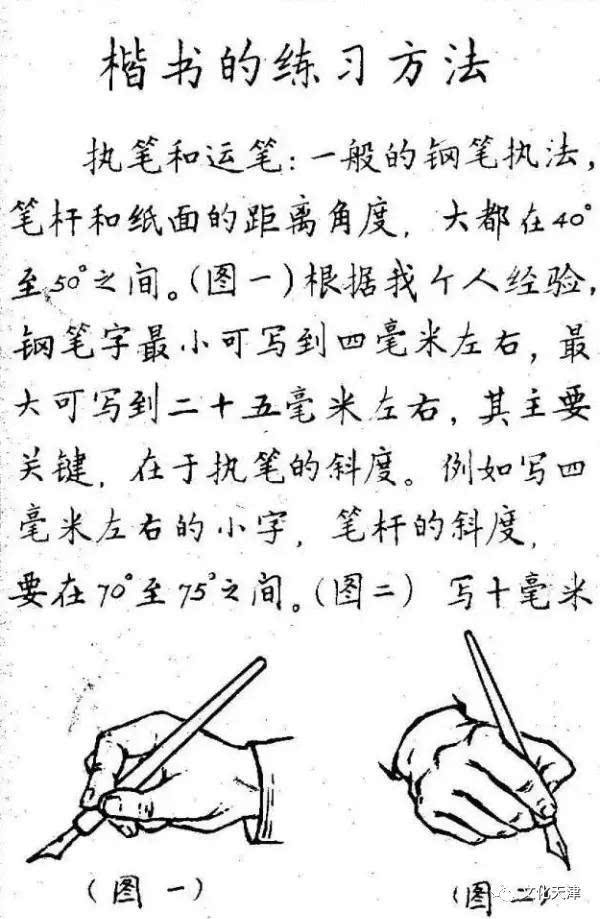 楷书的练习方法
执笔和运笔：一般的钢笔执法，
笔杆和纸面的距离角度，大都在40°
至50°之间。（图一）根据我个人经验，
钢笔字最小可写到四毫米左右，最
大可写到二十五毫米左右，其主要
关键，在于执笔的斜度。例如写四
毫米左右的小字，笔杆的斜度，
要在70°至75°之间。（图二）写十毫米
（图一）
（图二）
文化天津